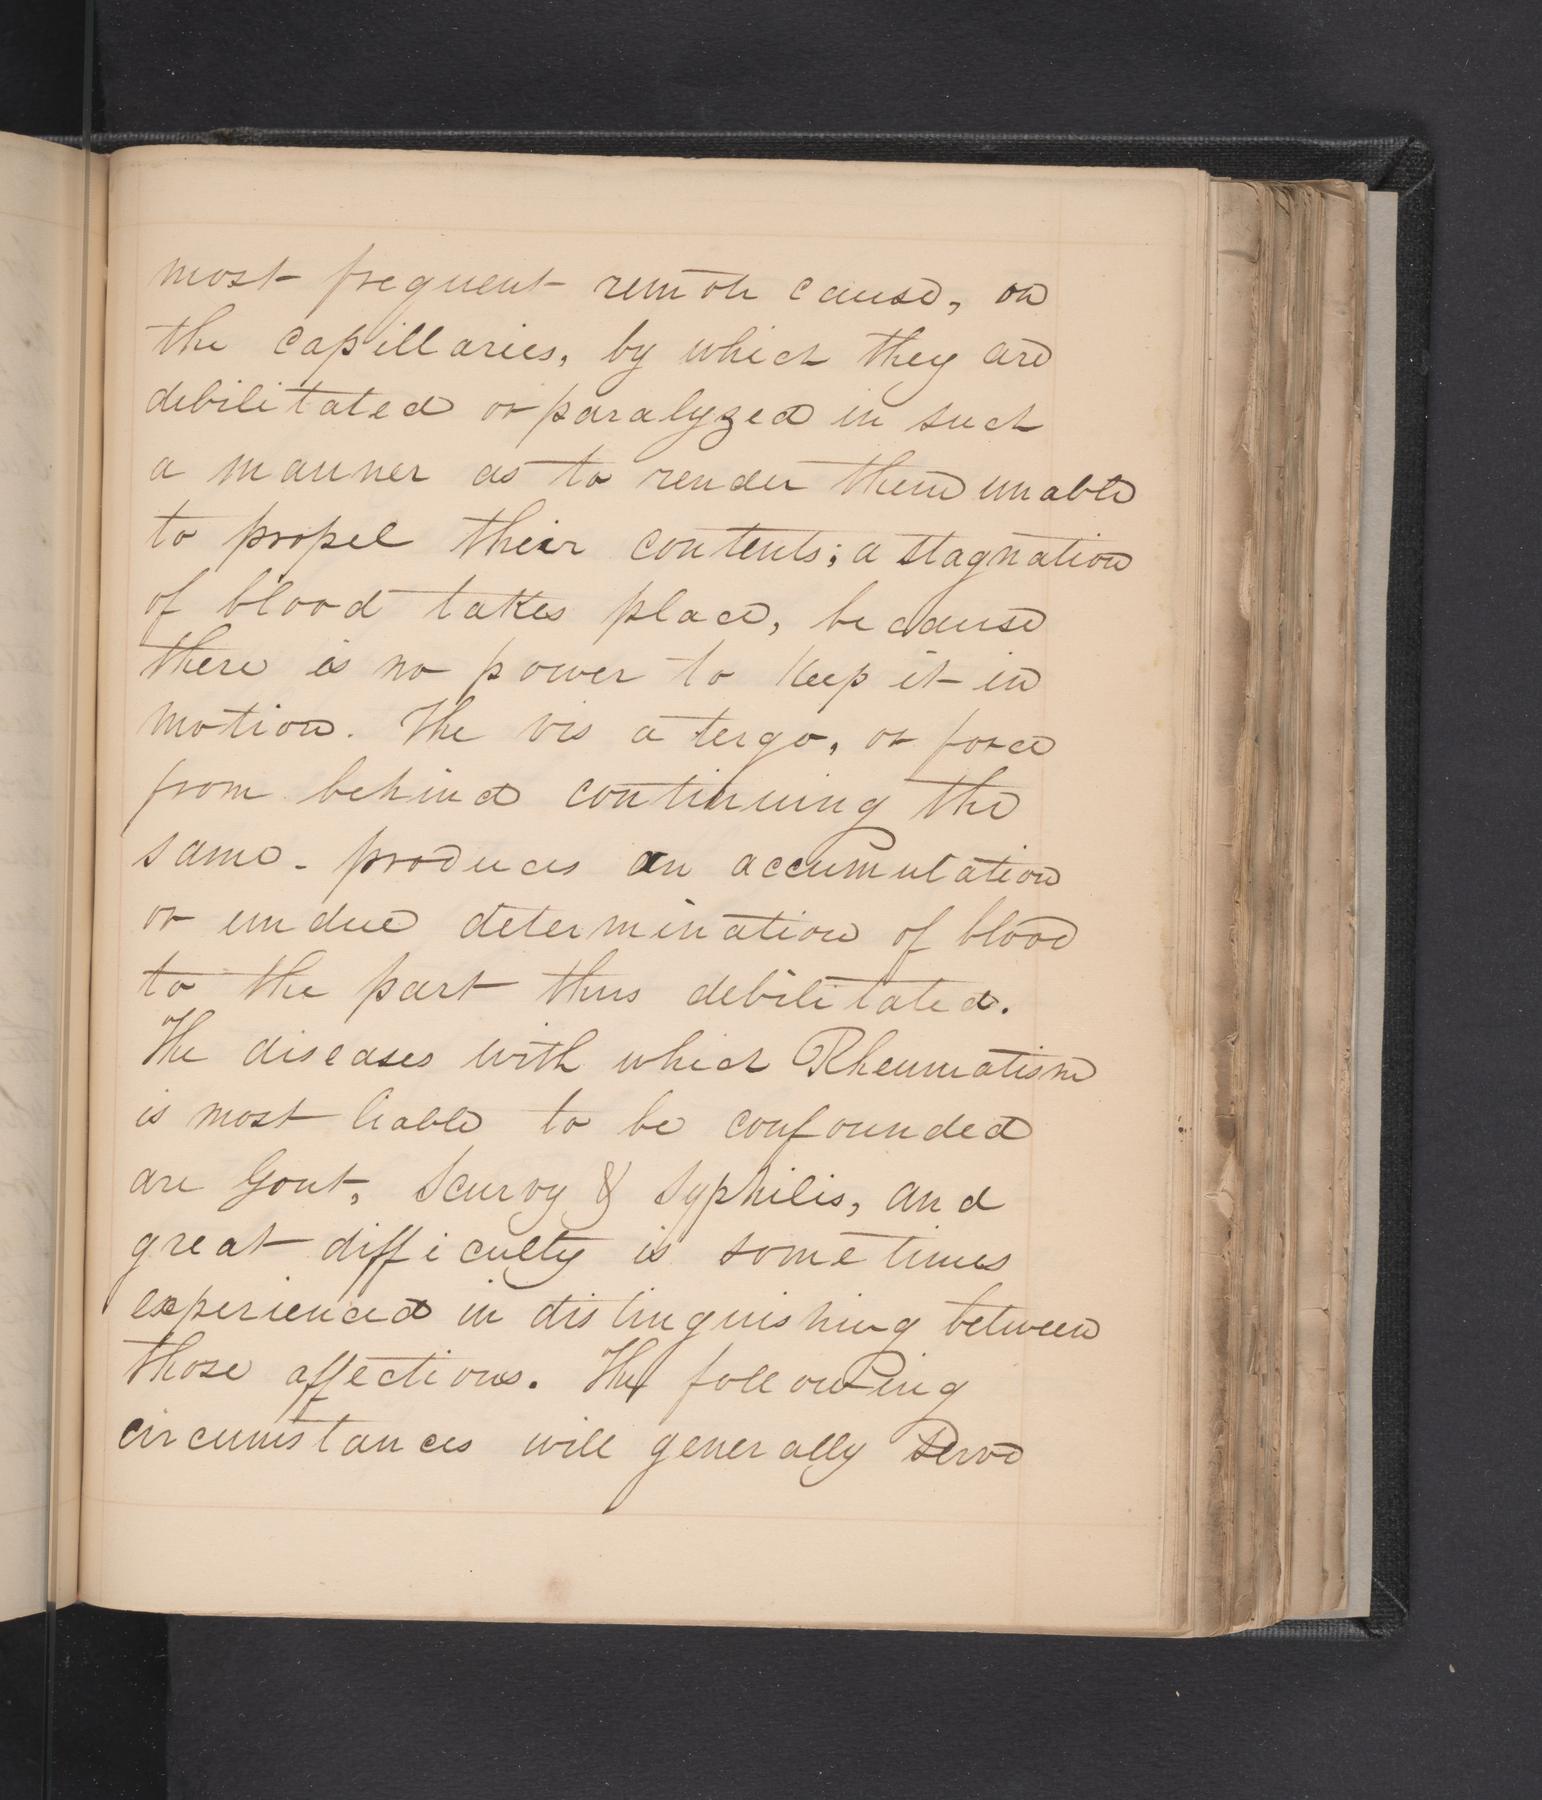 most frequent remote cause, on
the capillaries, by which they are
debilitated or paralyzed in such
a manner as to render them unable
to propel their contents; a stagnation
of blood takes place, because
there is no power to keep it in
motion. The vis a tergo, or force
from behind continuing the
same - produces an accumulation
or undue determination of blood
to the part thus debilitated.
The diseases with which Rheumatism
is most liable to be confounded
are Gout, Scurvy & Syphilis, and
great difficulty is sometimes
experienced in distinguishing between
those affections. The following
circumstances will generally serve